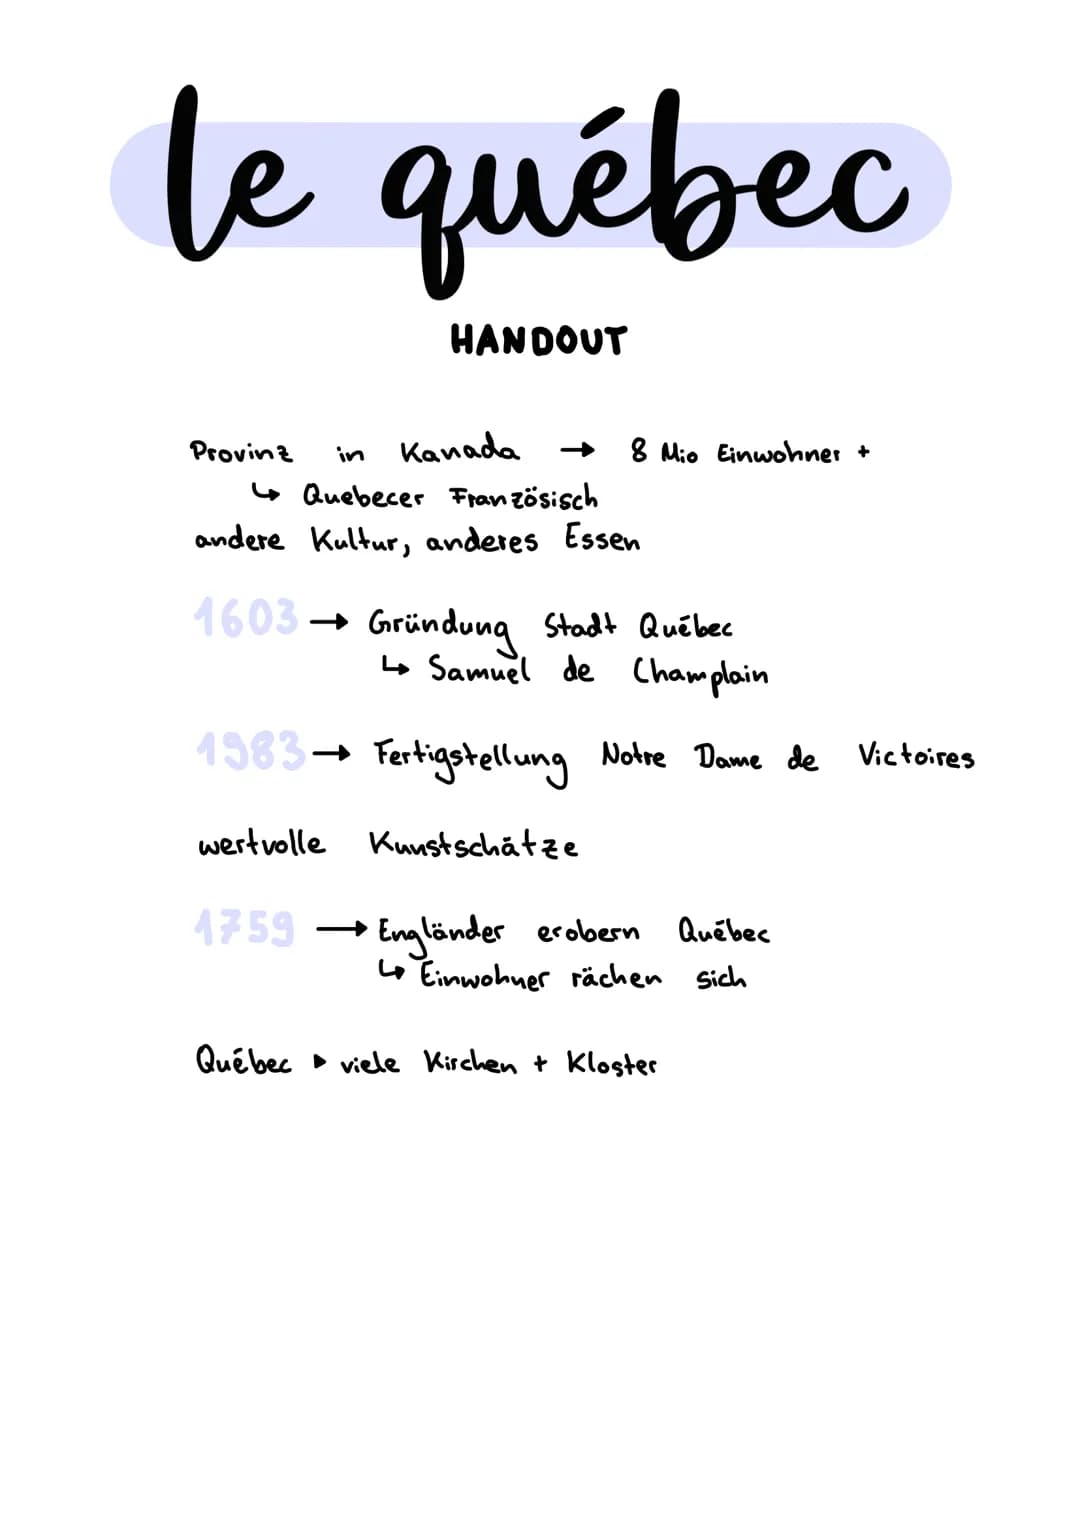 le québec
HANDOUT
Provinz in Kanada → 8 Mio Einwohner +
↳ Quebecer Französisch
andere Kultur, anderes Essen
1603 → Gründung Stadt Québec
↳ Samuel de Champlain
1983 → Fertigstellung Notre Dame de Victoires
wertvolle Kunstschätze
1759 → Engländer erobern Québec
↳ Einwohner rächen sich
Québec ▸ viele Kirchen + Kloster